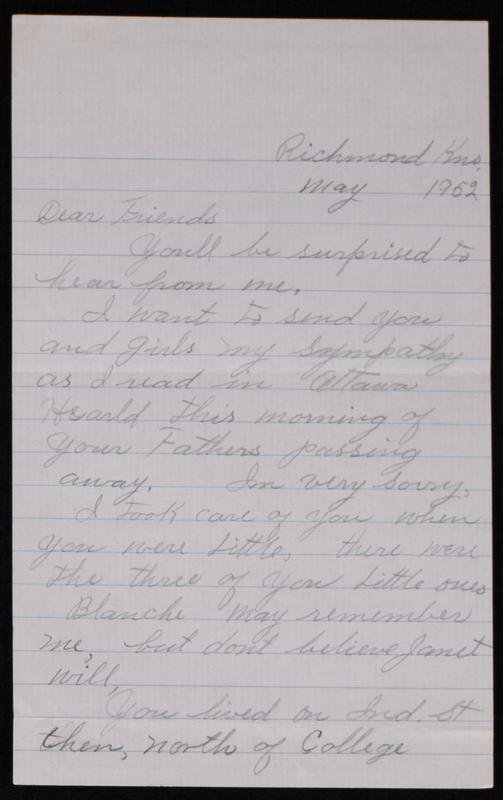 Richmond Kns.
May 1952
Dear Friends
Youll be surprised to
hear from me.
I want to send you
and girls my sympathy
as I read in Ottawa
Hearld this morning of
your Fathers passing
away. Im very sorry.
I took care of you when
you were little, there were
the three of you little ones
Blanche may remember
me, but dont believe Janet
will,
You lived on Ind. St
then, north of College